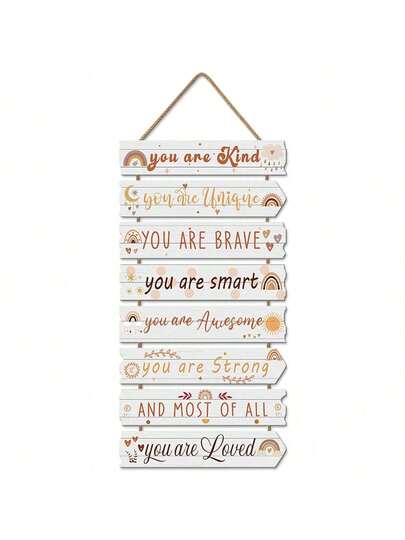 you are Kind
you are Unique
YOU ARE BRAVE
you are smart
you are Awesome
you are Strong
AND MOST OF ALL
you are Loved